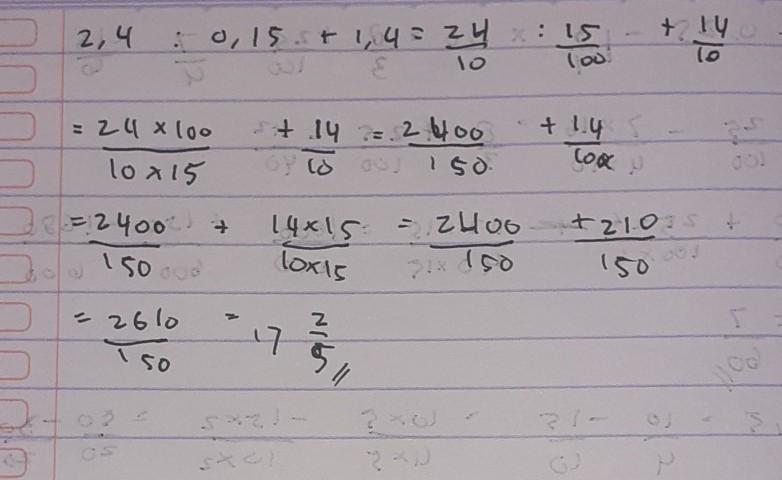 2,4 : 0,15 + 1,4 = 24/10 : 15/100 + 14/10
= 24 x 100/10 x 15 + 14/10 = 2400/150 + 14/10
= 2400/150 + 14x15/10x15 = 2400/150 + 210/150
= 2610/150 = 17 2/5 //